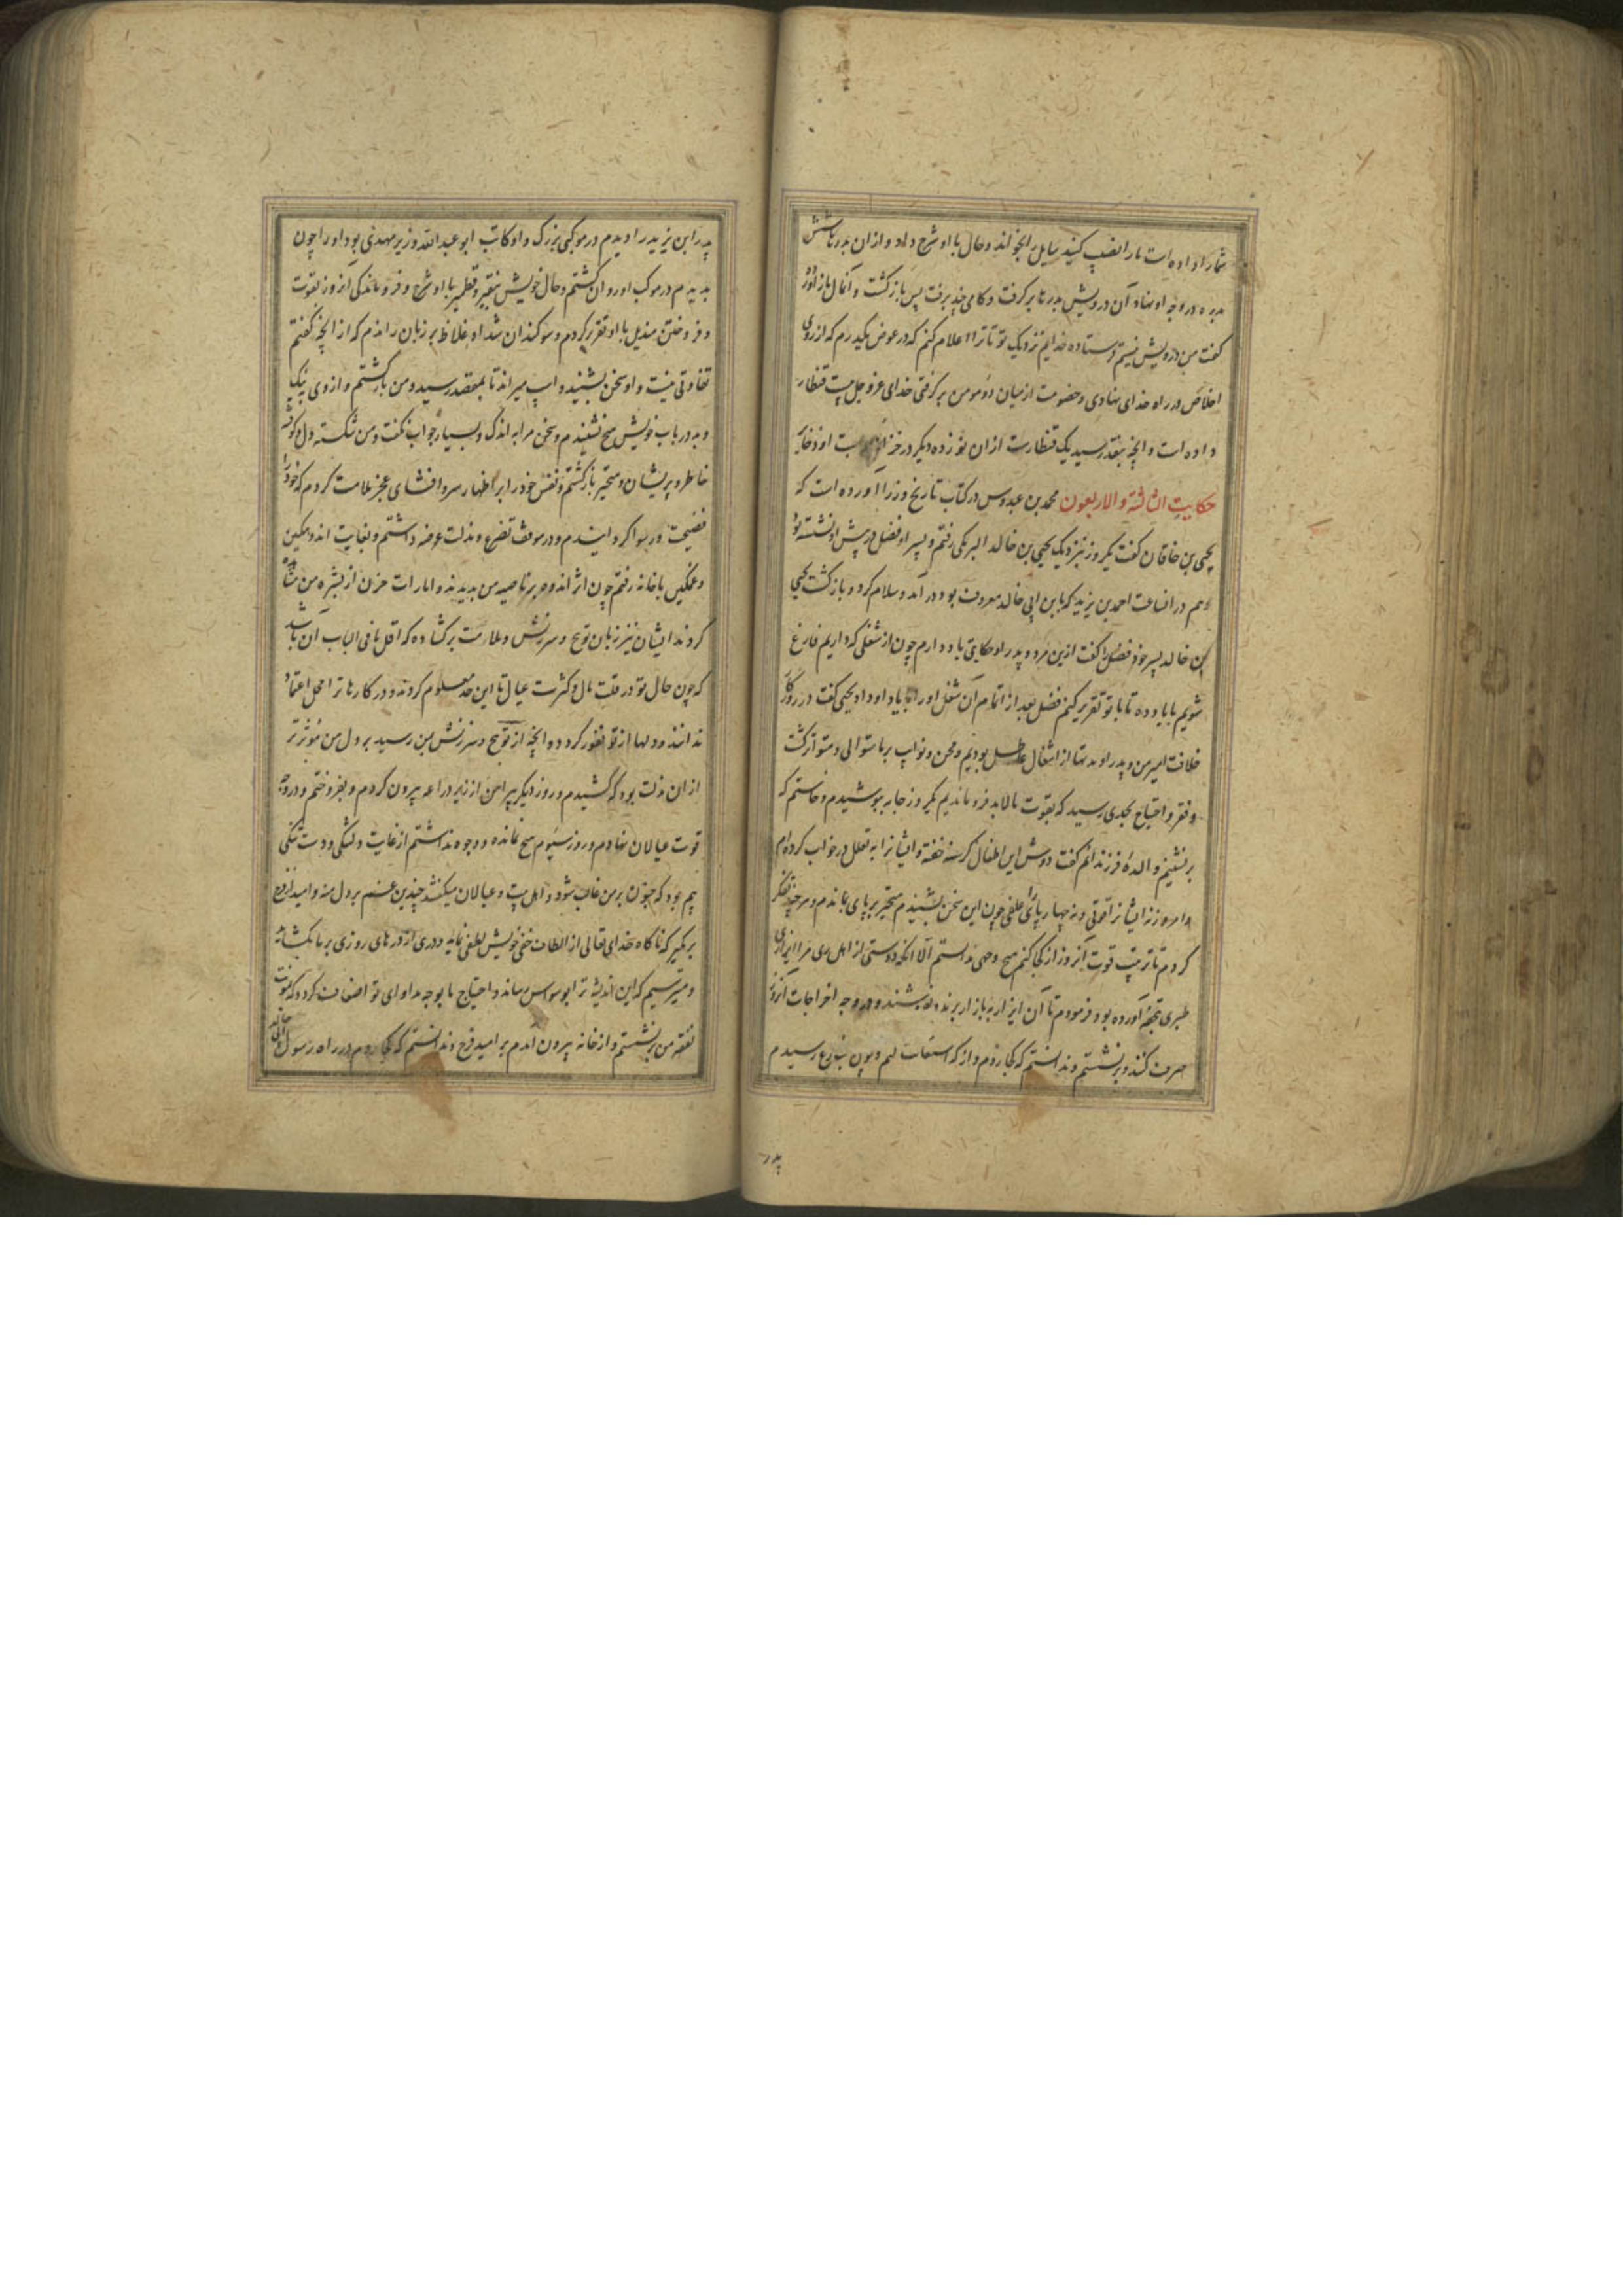 شما را داده است ما را نصیب کنید سایل را بخواند و حال با او شرح داد و از آن بدرها شش
بدره در وجه او نهاد آن درویش بدرها برگرفت و گامی چند برفت پس بازگشت و آن مال باز آورد
گفت من درویش نیستم فرستاده خدایم نزدیک تو تا ترا اعلام کنم که در عوض یکدرم که از روی
اخلاص در راه خدای نهادی و خصومت از میان دو مومن برگرفتی خدای عز و جل بیست قنطار
داده است و آنچه بنقد رسید یک قنطارست از آن نوزده دیگر در خزانه
حکایت الثالثة و الاربعون محمد بن عبدوس در کتاب تاریخ وزرا آورده است که
یحیی بن خاقان گفت یکروز نزدیک یحیی بن خالد البرمکی رفتم و پسر او فضل در پیش او نشسته بود
و هم در آن ساعت احمد بن یزید که بابن ابی خالد معروف بود در آمد و سلام کرد و بازگشت یحیی
بن خالد پسر خود فضل را گفت ازین مرد و پدر او حکایتی یاد دارم چون از شغلی که داریم فارغ
شویم با یاد ده تا با تو تقریر کنم فضل بعد از اتمام آن شغل او را با یاد او داد یحیی گفت در روزگار
خلافت امیر من و پدر او مدتها از اشغال عاطل بودیم و محن و نوایب بر ما متوالی و متواتر گشت
و فقر و احتیاج بحدی رسید که بقوت مالابد فرو ماندیم یکروز جامه بپوشیدم و خاستم که
برنشینم والده فرزندانم گفت دوش این اطفال گرسنه خفته و ایشانرا به تعلل در خواب کرده‌ام
و امروز نه ایشانرا قوتی و نه چهارپای را علفی چون این سخن بشنیدم متحیر بر پای بماندم و هر چند تفکر
کردم تا ترتیب قوت آنروز از کجا کنم هیچ وجهی ندانستم الا آنکه دوستی از اهل ری مرا ایزاری
طبری تحفه آورده بود فرمودم تا آن ایزار به بازار برند و بفروشند و در وجه اخراجات آنروز
صرف کنند و برنشستم و ندانستم که کجا روم و از که استعانت طلبم و چون بشارع رسیدم
پدر
پدر ابن یزید را دیدم در موکبی بزرگ و او کاتب ابو عبدالله وزیر مهدی بود او را چون
بدیدم در موکب او روان گشتم و حال خویش بنقیر و قطمیر با او شرح و فرو ماندگی آنروز بقوت
و فروختن مندیل با او تقریر کردم و سوگندان شداد و غلاظ بر زبان راندم که از آنچه گفتم
تفاوتی نیست و او سخن بشنید و اسپ میراند تا بمقصد رسید و من بازگشتم و از وی بنیک
و بد در باب خویش هیچ نشنیدم و سخن مرا به اندک و بسیار جواب نگفت و من شکسته دل و کوفته
خاطر و پریشان و متحیر بازگشتم و نفس خود را بر اظهار سر و افشای عجز ملامت کردم که خود را
فضیحت و رسوا گردانیدم و در موقف تضرع و مذلت عرضه داشتم و بغایت اندوهگین
و غمگین با خانه رفتم چون اثر اندوه بر ناصیه من بدیدند و امارات حزن از بشره من مشاهده
کردند ایشان نیز زبان توبیخ و سرزنش و ملامت برگشاده که اقل ما فی الباب آن باشد
که چون حال تو در قلت مال و کثرت عیال تا این حد معلوم گردد در کارها ترا محل اعتماد
ندانند و دلها از تو نفور گردد و آنچه از توبیخ و سرزنش بمن رسید بر دل من موثرتر
از آن مذلت بود که کشیدم و روز دیگر پیراهن از زیر دراعه بیرون کردم و بفروختم و در وجه
قوت عیالان نهادم و روز سیوم هیچ نمانده و وجوه نداشتم از غایت دلتنگی و دست تنگی
بیم بود که جنون بر من غالب شود و اهل بیت و عیالان میگفتند چندین غم بر دل منه و امید از فرج
برمگیر که ناگاه خدای تعالی از الطاف خفی خویش لطفی نماید و دری از درهای روزی بر ما بگشاید
و میترسیم که این اندیشه ترا بوسواس رساند و احتیاج ما بوجه مداوای تو اضافت گردد که مؤنت
نفقه من برنشستم و از خانه بیرون آمدم بر امید فرج و ندانستم که کجا روم در راه رسول